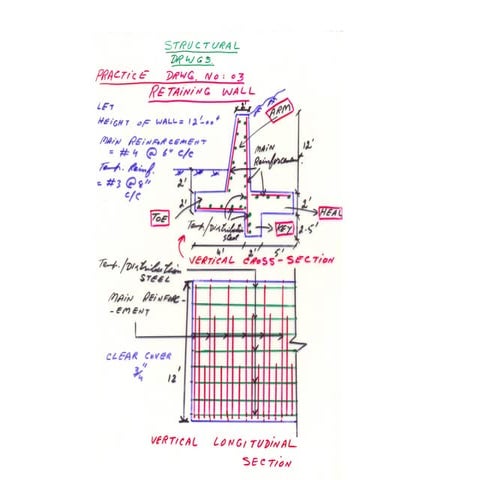 STRUCTURAL
DRWGS.
PRACTICE DRWG. NO: 03
RETAINING WALL
LET
HEIGHT OF WALL = 12'-00"
MAIN REINFORCEMENT
= #4 @ 6" C/C
Temp. Reinf.
= #3 @ 8"
C/C
ARM
MAIN
Reinforcement
12'
2'
2'
2'
2.5'
TOE
HEAL
KEY
Temp/Distribution
Steel
4'
2'
5'
VERTICAL CROSS-SECTION
Temp./Distribution
STEEL
MAIN REINFORC-
-EMENT
CLEAR COVER
3/4"
12'
VERTICAL LONGITUDINAL
SECTION